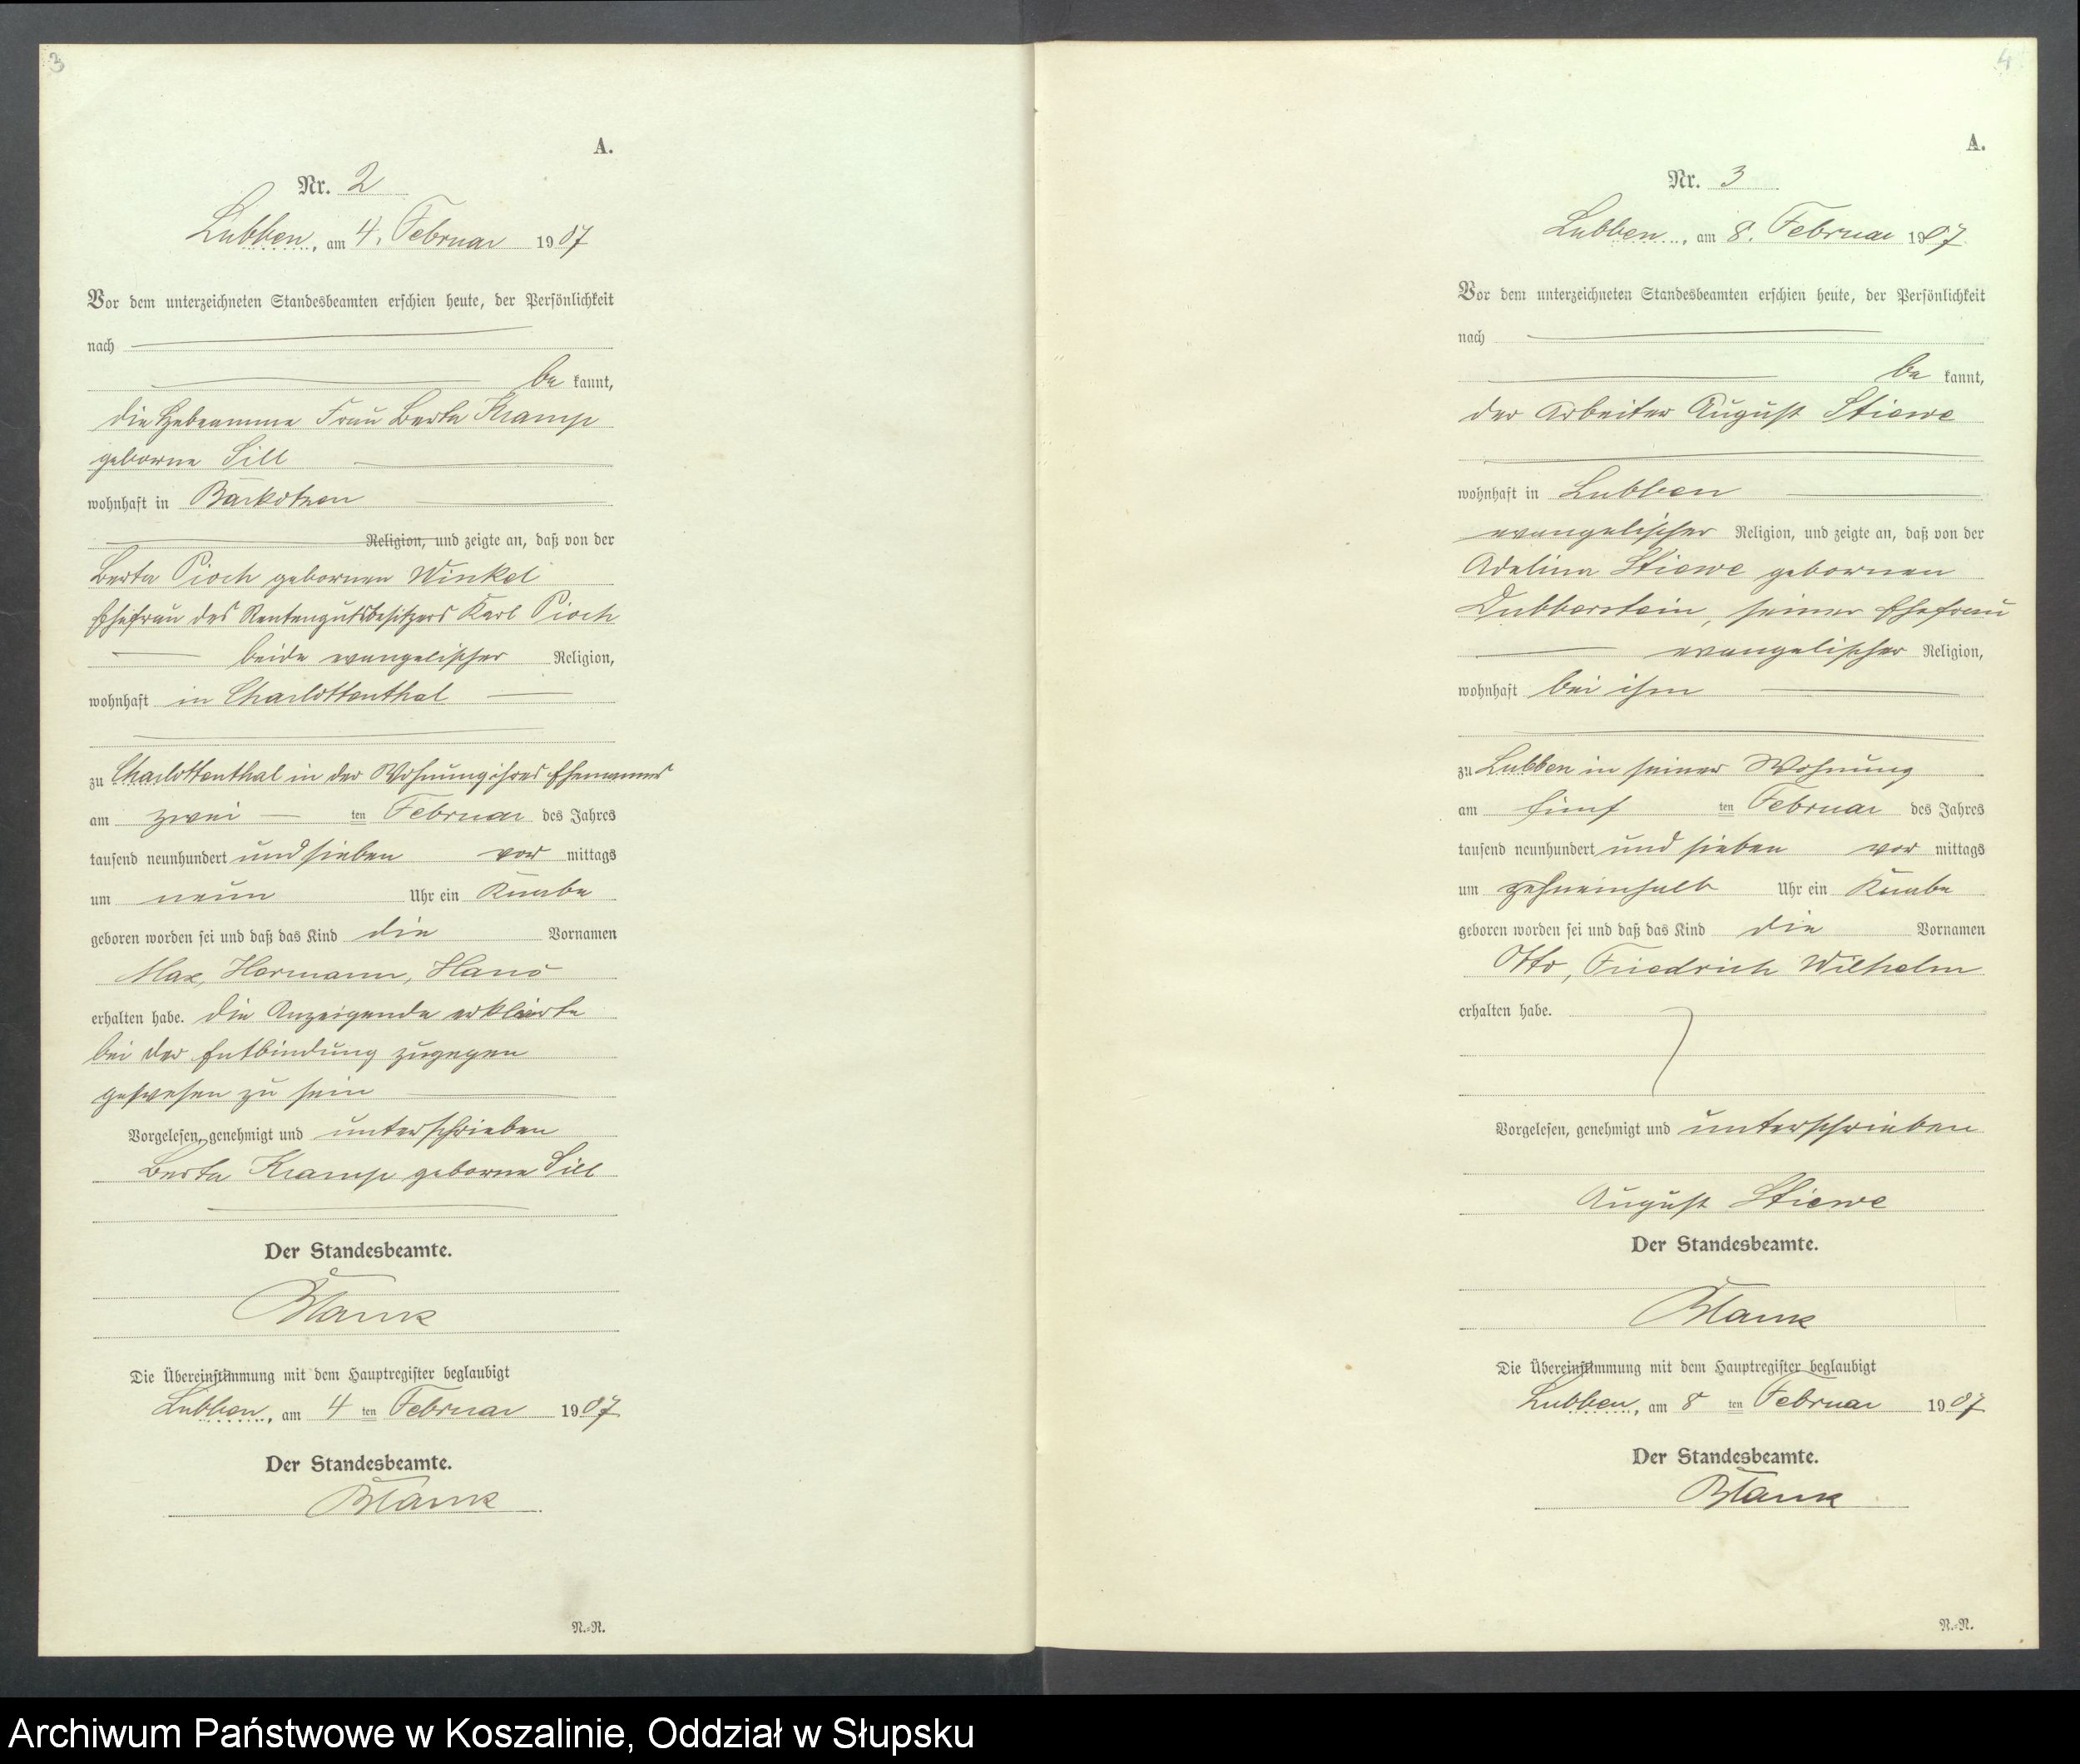 3
A.
Nr. 2
Lubben, am 4. Februar 1907
Vor dem unterzeichneten Standesbeamten erschien heute, der Persönlichkeit
nach
be kannt,
die Hebeamme Frau Berta Kramp
geborne Sill
wohnhaft in Barkotzen
Religion, und zeigte an, daß von der
Berta Pioch gebornen Winkel
Ehefrau des Rentengutsbesitzers Karl Pioch
beide evangelischer Religion,
wohnhaft in Charlottenthal
zu Charlottenthal in der Wohnung ihres Ehemannes
am zwei ten Februar des Jahres
tausend neunhundert und sieben vor mittags
um neun Uhr ein Knabe
geboren worden sei und daß das Kind die Vornamen
Max, Hermann, Hans
erhalten habe. die Anzeigende erklärte
bei der Entbindung zugegen
gewesen zu sein
Vorgelesen, genehmigt und unterschrieben
Berta Kramp geborne Sill
Der Standesbeamte.
Blank
Die Übereinstimmung mit dem Hauptregister beglaubigt
Lubben, am 4 ten Februar 1907
Der Standesbeamte.
Blank
N.-N.
4
A.
Nr. 3
Lubben, am 8. Februar 1907
Vor dem unterzeichneten Standesbeamten erschien heute, der Persönlichkeit
nach
be kannt,
der Arbeiter August Stiewe
wohnhaft in Lubben
evangelischer Religion, und zeigte an, daß von der
Adeline Stiewe gebornen
Dubberstein, seiner Ehefrau
evangelischer Religion,
wohnhaft bei ihm
zu Lubben in seiner Wohnung
am fünf ten Februar des Jahres
tausend neunhundert und sieben vor mittags
um zehneinhalb Uhr ein Knabe
geboren worden sei und daß das Kind die Vornamen
Otto, Friedrich Wilhelm
erhalten habe.
Vorgelesen, genehmigt und unterschrieben
August Stiewe
Der Standesbeamte.
Blank
Die Übereinstimmung mit dem Hauptregister beglaubigt
Lubben, am 8 ten Februar 1907
Der Standesbeamte.
Blank
N.-N.
Archiwum Państwowe w Koszalinie, Oddział w Słupsku